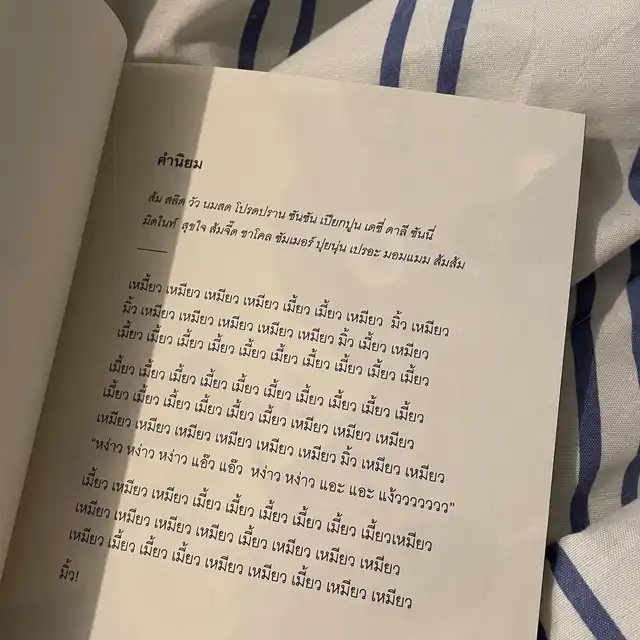 คำนิยม
ส้ม สลิด วัว นมสด โปรดปราน ซันซัน เปียกปูน เดซี่ ดาลี ซันนี่
มิดไนท์ สุขใจ ส้มจี๊ด ชาโคล ซัมเมอร์ ปุยนุ่น เปรอะ มอมแมม ส้มส้ม
เหมี้ยว เหมียว เหมียว เหมียว เมี้ยว เมี้ยว เหมียว มิ้ว เหมียว
มิ้ว เหมียว เหมียว เหมียว เหมียว เหมียว มิ้ว เมี้ยว เหมียว
เมี้ยว เมี้ยว เมี้ยว เมี้ยว เมี้ยว เมี้ยว เมี้ยว เมี้ยว เมี้ยว เมี้ยว
เมี้ยว เมี้ยว เมี้ยว เมี้ยว เมี้ยว เมี้ยว เมี้ยว เมี้ยว เมี้ยว เมี้ยว
เมี้ยว เมี้ยว เมี้ยว เมี้ยว เมี้ยว เมี้ยว เหมียว เหมียว เหมียว
เหมียว เหมียว เหมียว เหมียว เหมียว เหมียว มิ้ว เหมียว เหมียว
“หง่าว หง่าว หง่าว แอ๊ว แอ๊ว หง่าว หง่าว แอะ แอะ แง้ววววววว”
เมี้ยว เหมียว เหมียว เมี้ยว เมี้ยว เมี้ยว เมี้ยว เมี้ยว เมี้ยวเหมียว
เหมียว เหมียว เหมียว เหมียว เมี้ยว เหมียว เหมียว เหมียว
เหมียว เมี้ยว เมี้ยว เมี้ยว เหมียว เหมียว เมี้ยว เหมียว เหมียว
มิ้ว!